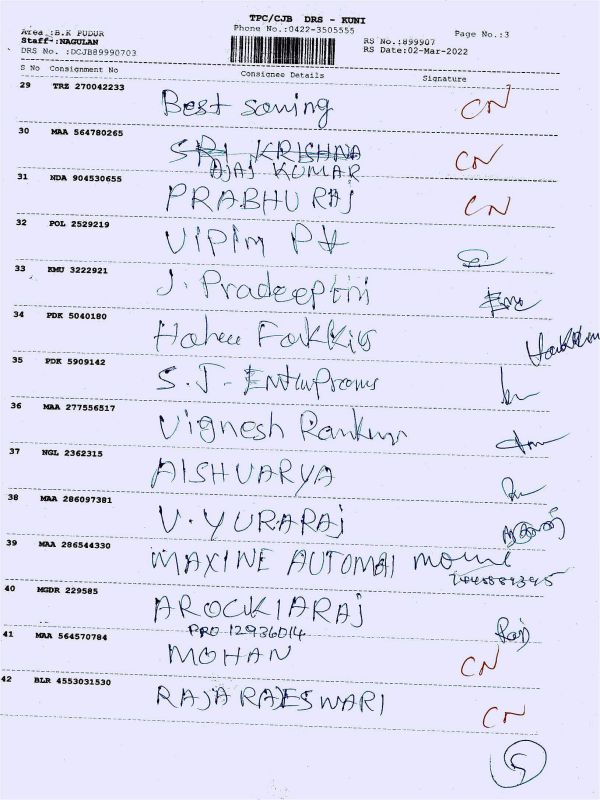 TPC/CJB DRS - KUNI
Area :B.K PUDUR Phone No.:0422-3505555 Page No.:3
Staff :NAGULAN RS No.:899907
DRS No. :DCJB89990703 RS Date:02-Mar-2022
S No Consignment No Consignee Details Signature
29 TRZ 270042233 Best saving CN
30 MAA 564780265 SRI KRISHNA CN
AJAJ KUMAR
31 NDA 904530655 PRABHU RAJ CN
32 POL 2529219 Vipim PV
33 KMU 3222921 J. Pradeeptini
34 PDK 5040180
35 PDK 5909142 S.J-
36 MAA 277556517 Vignesh
37 NGL 2362315 AISHVARYA
38 MAA 286097381 V.YURARAJ
39 MAA 286544330 MAXINE AUTOMAI
40 MGDR 229585 AROCKIARAJ Raj
PRO 12936014
41 MAA 564570784 MOHAN CN
42 BLR 4553031530 RAJARAJESWARI CN
5